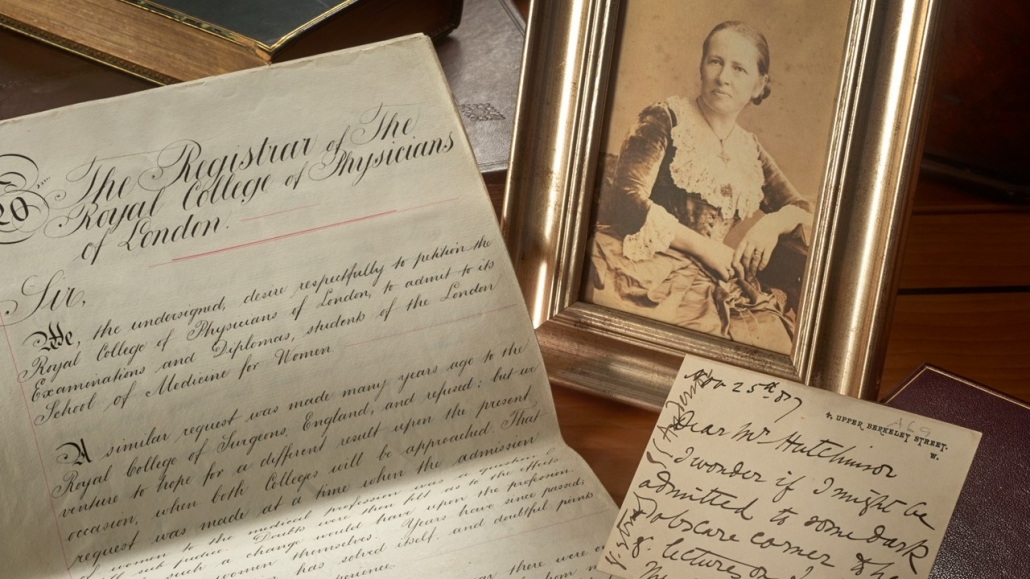 To
The Registrar of The
Royal College of Physicians
of London.
Sir,
We, the undersigned, desire respectfully to petition the
Royal College of Physicians of London, to admit to its
Examinations and Diplomas, students of the London
School of Medicine for Women
A similar request was made many years ago to the
Royal College of Surgeons, England, and refused: but we
venture to hope for a different result upon the present
occasion, when both Colleges will be approached. That
request was made at a time when the admission
of women to the medical profession was a question
Doubts were then felt as to the effects
such a change would have upon the profession
women themselves. Years have since passed,
has solved itself, and doubtful points
experience.
there were
Nov 25th 87
A69
4, UPPER BERKELEY STREET.
W.
Dear Mr Hutchinson
I wonder if I might be
admitted to some dark
& obscure corner of the
lectures on